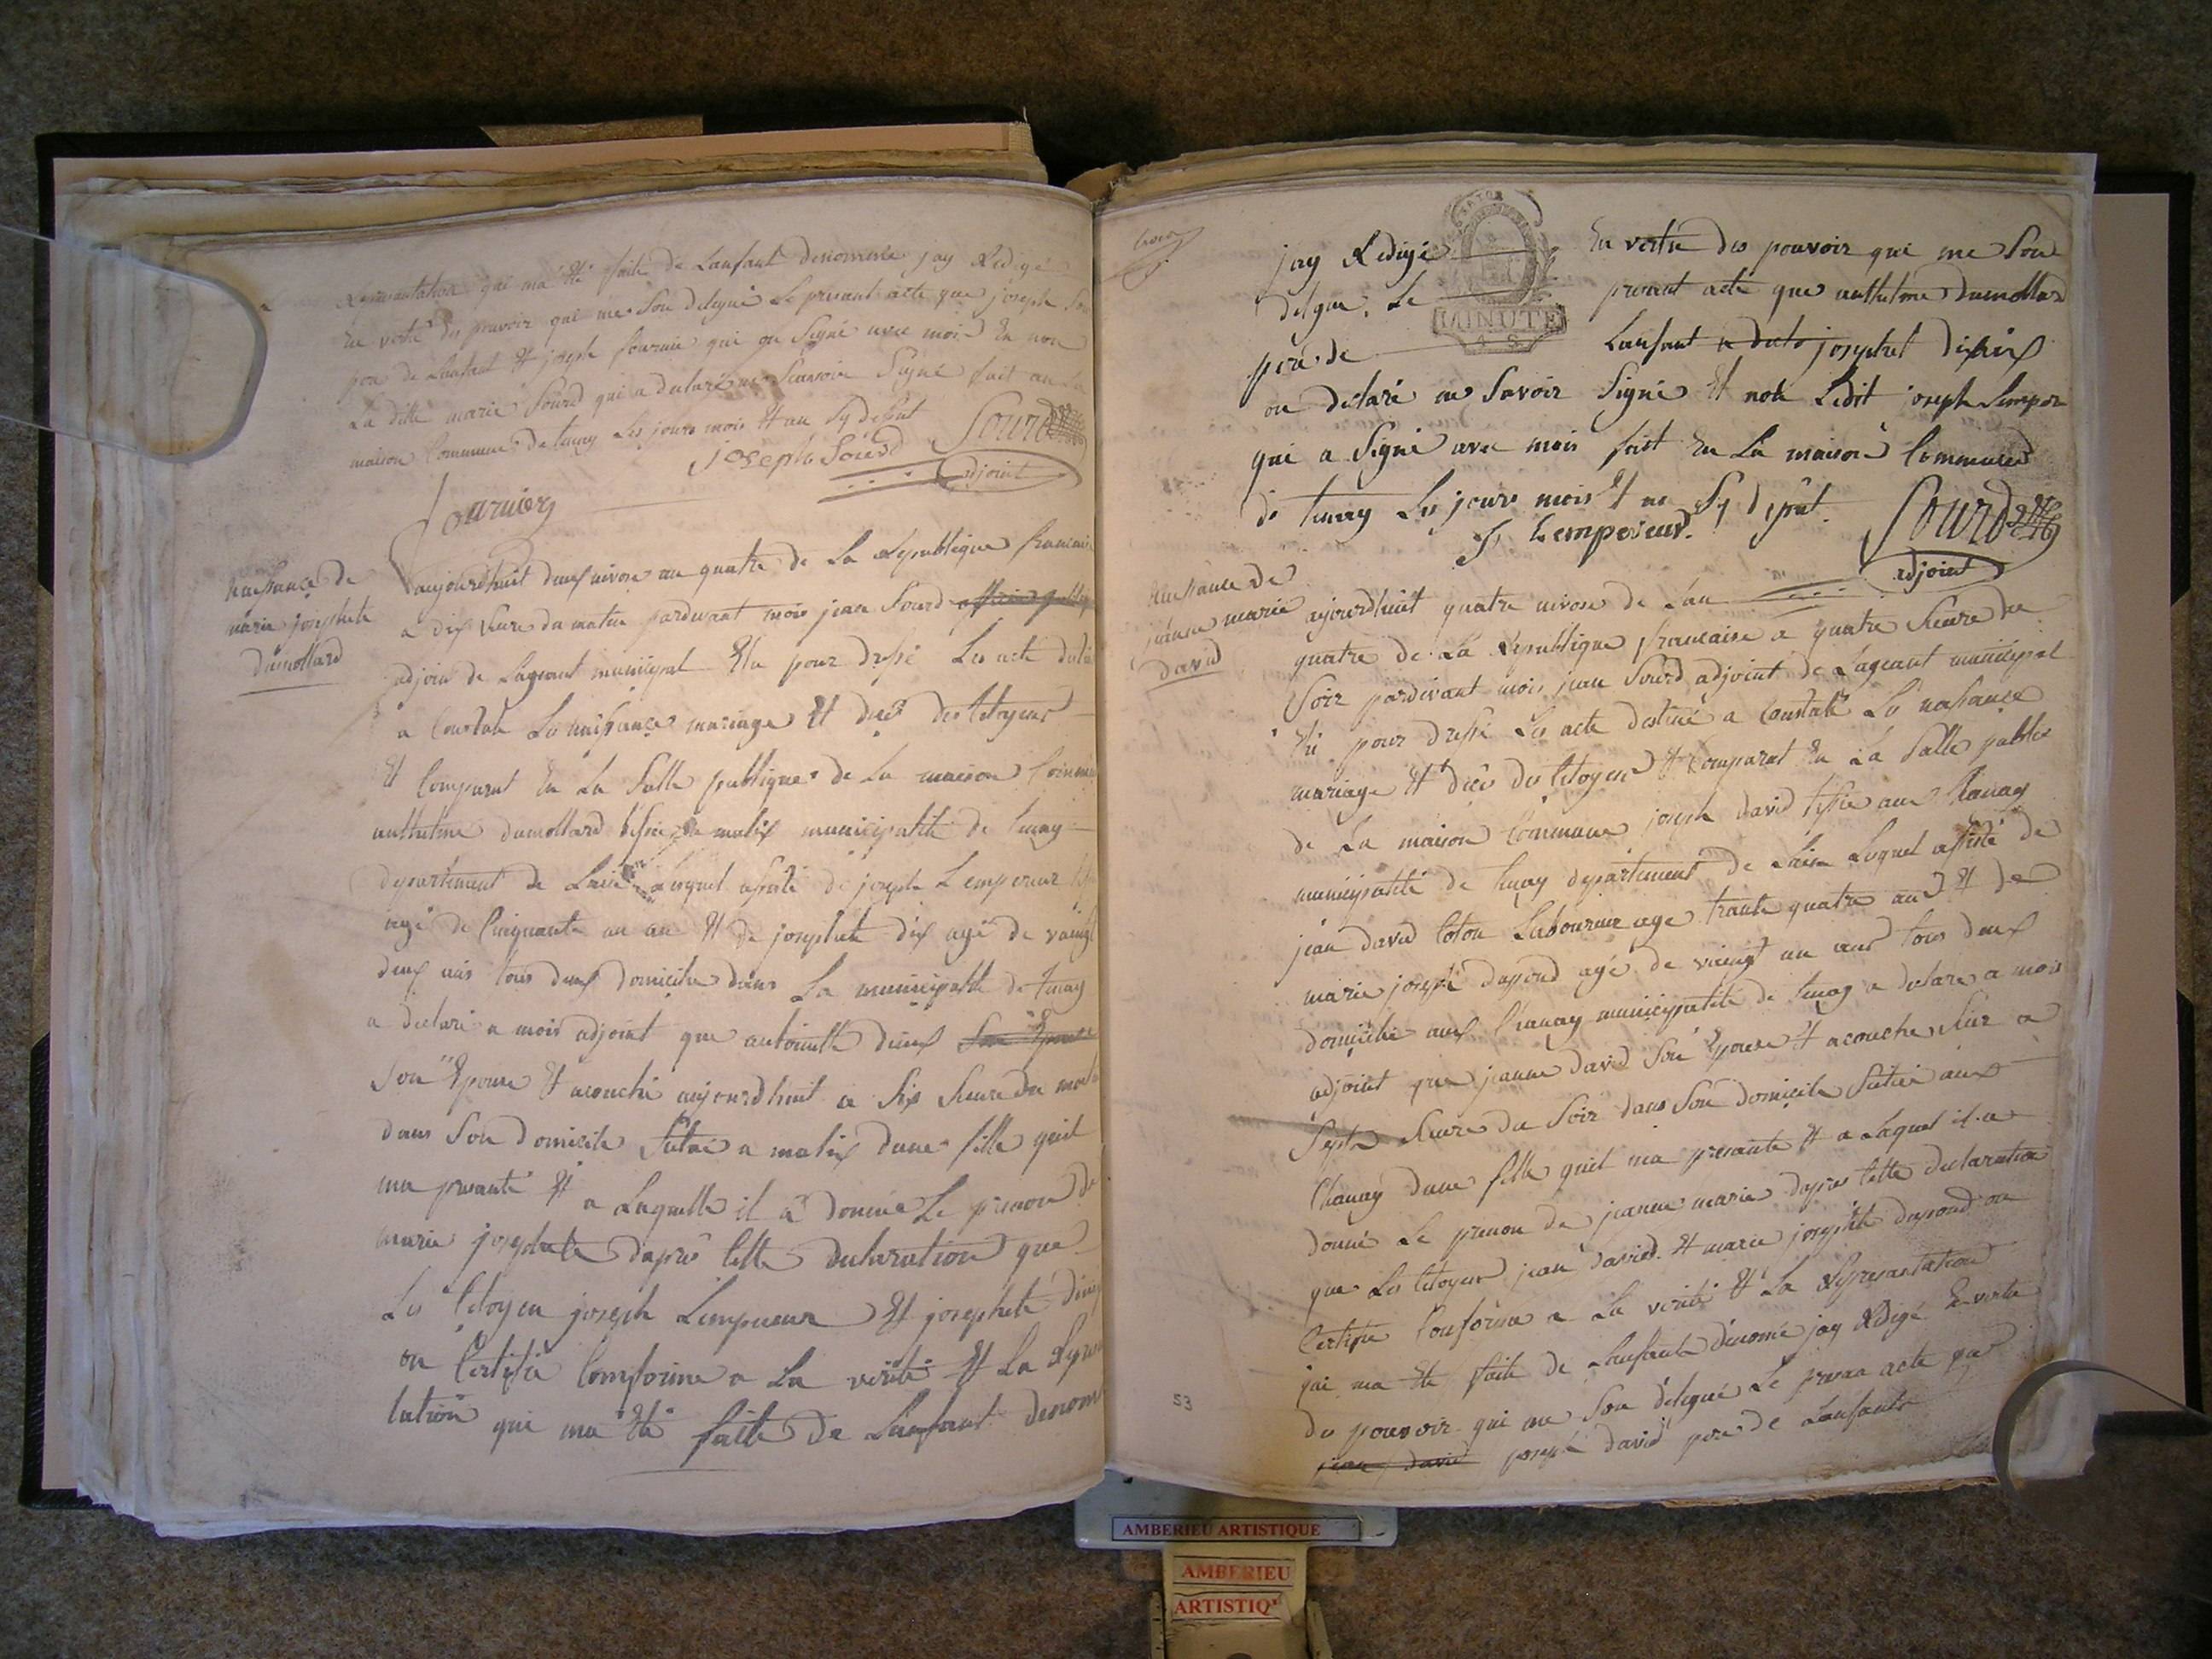 qui ma Eté faite de Lanfant denommé jay Redigé
En vertu des pouvoir qui me Son delegué Le presant acte que joseph
pere de Lanfant Et joseph fournie qui on Signé avec moi Et non
La ditte marie Sourd qui a declaré ne Scavoir Signé fait en La
maison Commune de tenay Les jours mois Et an Sy desut
joseph Sourd Sourd
adjoint
fournier
naissance de
marie josephete
dumollard
aujourdhuit deux nivose an quatre de La Republique francaise
a dix heure du matin pardevant mois jean Sourd
adjoin de Lageant municipal Elu pour dressé Les acte
a Constaté La naissance mariage Et décé des Citoyens
Et Comparut En La Salle publique de La maison Commune
anthelme dumollard a malix municipalité de tenay
departement de Lain Lequel assisté de joseph Lempereur
agé de Cinquante un an Et de josephete dix agé de vaingt
deux ans tous deux domicilié dans La municipalité de tenay
a declaré a mois adjoint que antoinette Son Epouse
Son Epouse Et acouché aujourdhuit a Six heure du matin
dans Son domicile Situé a malix dune fille quil
ma presanté Et a Laquelle il a donné Le prenon de
marie josephete dapres Cette declaration que
Les Citoyen joseph Lempereur Et josephete
on Certifié Comforme a La verité Et La
tation qui ma Eté faitte de Lanfant denommé
jay Redigé En vertu des pouvoir qui me Son
delgué Le presant acte que anthelme dumollard
MINUTE
4 S
pere de Lanfant josephet
on declaré ne Savoir Signé Et non Ledit joseph
qui a Signé avec mois fait En La maison Commune
de tenay Les jours mois Et an Sy dessut
J Lempereur Sourd
adjoint
naissance de
jeanne marie
david
aujourdhuit quatre nivose de Lan
quatre de La Republique francaise a quatre heure du
Soir pardevant mois jean Sourd adjoint de Lageant municipal
Elu pour dressé Les acte destiné a Constaté La naissance
mariage Et décé des Citoyen Et Comparut En La Salle publié
de La maison Commune joseph david aux Chanay
municipalité de tenay departement de Lain Lequel assisté de
jean david Laboureur agé trante quatre ans Et de
marie joseph dupond agé de vaingt un ans tous deux
domicilié aux Chanay municipalité de tenay a declaré a mois
adjoint que jeanne david Son Epouse Et acouché hier a
Sept heure du Soir dans Son domicile Situé aux
Chanay dune fille quil ma presanté Et a Laquel il a
donné Le prenon de jeanne marie dapres Cette declaration
que Les Citoyen jean david Et marie josephte dupond on
Certifié Conforme a La verité Et La Representation
qui ma Eté faite de Lanfant dénomé jay Redigé En vertu
des pouvoir qui me Son délegué Le presan acte que
jean david joseph david pere de Lanfant
53
AMBERIEU ARTISTIQUE
AMBERIEU
ARTISTIQ